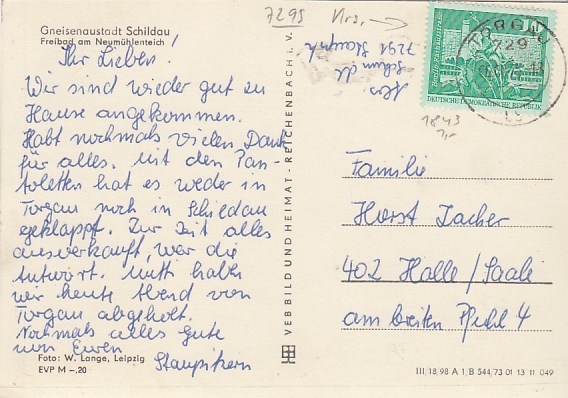 Gneisenaustadt Schildau
Freibad am Neumühlenteich
Ihr Lieben!
Wir sind wieder gut zu
Hause angekommen.
Habt nochmals vielen Dank
für alles. Mit den Pan-
toletten hat es weder in
Torgau noch in Schildau
geklappt. Zur Zeit alles
ausverkauft, war die
Antwort. Mutti haben
wir heute Abend von
Torgau abgeholt.
Nochmals alles Gute
von Euren
Staupitzern
Foto: W. Lange, Leipzig
EVP M –,20
VEB BILD UND HEIMAT · REICHENBACH i. V.
7295
Abs.
7291 Staupitz
729
DEUTSCHE DEMOKRATISCHE REPUBLIK
1843
Familie
Horst
402 Halle/Saale
am breiten Pfuhl 4
III 18 98 A 1 B 544/73 01 13 11 049